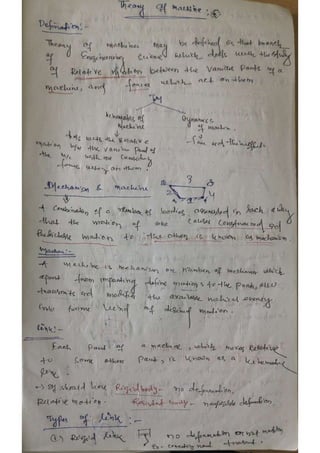 Theory of machine :-
Definition:-
Theory of machines may be defined as that branch
of Engineering Science which deals with the study
of Relative motion between the various parts of a
machine, and forces which act on them.
TOM
Kinematics of Machine
Dynamics of machine
deals with the Relative
motion b/w the various parts of
the m/c with out Considering
forces acting on them.
force and
Mechanism & machine
3
2
4
A Combination of a number of bodies assembled in such a way
that the motion of one causes Constrained and
Predictable motion to the other is known as mechanism
Machine:-
A machine is mechanism or number of mechanism which
apart from imparting define motions to the parts, also
transmits and modifies the available natural energy
into some kind of desired motion.
Link:-
Each part of a machine, which moves Relative
to some other part, is known as a kinematic
link.
It should have Rigid body - no deformation,
Relative motion. Resistant body - negligible deformation.
Types of link :-
(1) Rigid link
no deformation
Ex- connecting rod